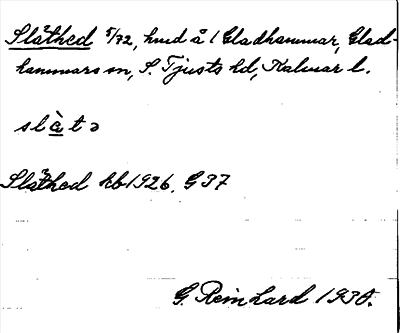 Slåthed 5/72, hmd å 1 Gladhammar, Glad-
hammars sn, S. Tjusts hd, Kalmar l.
slàtə
Slåthed kb 1926. G P7
G. Reinhard 1930.